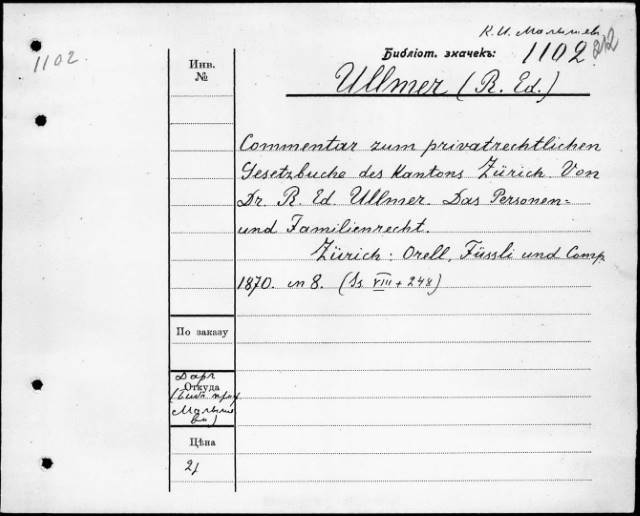 К. И. Малышев
1102.
Библіот. значекъ: 1102 212
Инв. №
Ullmer (R. Ed.)
Commentar zum privatrechtlichen
Gesetzbuche des Kantons Zürich. Von
Dr. R. Ed. Ullmer. Das Personen=
und Familienrecht.
Zürich: Orell, Füssli und Comp.
1870. in 8. (Ss. VIII + 248)
По заказу
Даръ
Откуда
(Библ. проф.
Малыше
ва)
Цѣна